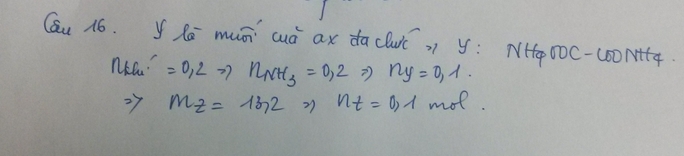 Câu 16. Y là muối của ax đa chức => Y: NH4OOC-COONH4.
nkhí = 0,2 => nNH3 = 0,2 => ny = 0,1.
=> mZ = 13,2 => nZ = 0,1 mol.